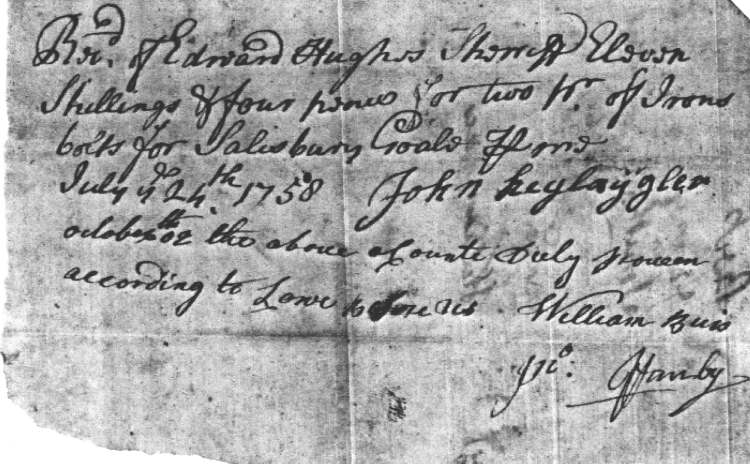 Recd. of Edward Hughes Sherriff Eleven
Shillings & four pence for two pr. of Irons
bolts for Salisbury Goale ⅌ me
July ye 24th 1758 John
october the above acounte Duly proven
according to Lawe before us William Buis
Jno. Hanby